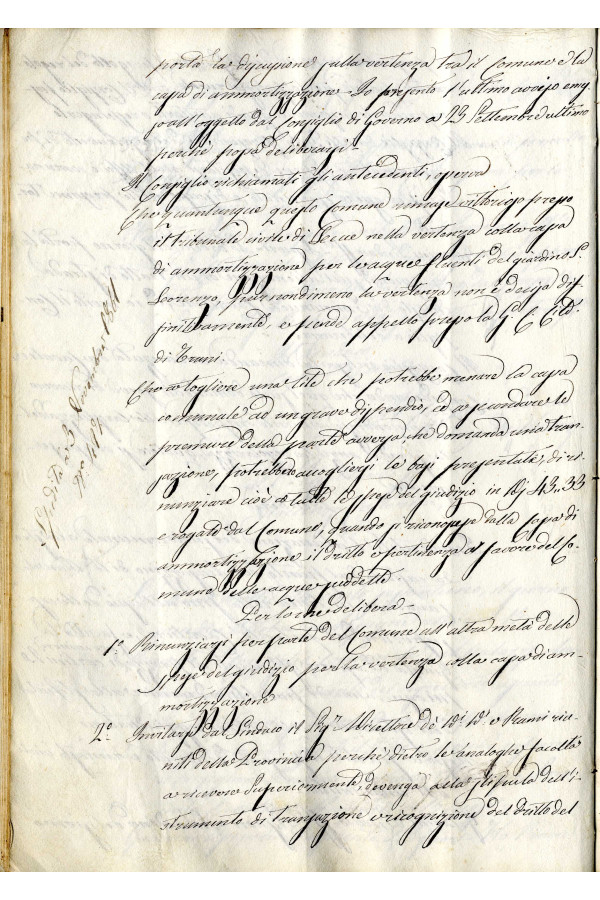 porta la discussione sulla vertenza tra il Comune e la
cassa di ammortizzazione. Io presento l'ultimo avviso emes
so all'oggetto dal Consiglio di Governo a 23 Settembre ultimo
perchè possa deliberarsi.
Il Consiglio richiamati gli antecedenti, osserva
Che quantunque questo Comune rimase vittorioso presso
il tribunale civile di Lecce nella vertenza colla cassa
di ammortizzazione per le acque fluenti del giardino S.
Lorenzo, pur nondimeno la vertenza non è decisa dif
finitivamente, e pende appello presso la G. C. Cile.
di Trani.
Che a togliere una lite che potrebbe menare la cassa
comunale ad un grave dispendio, ed a secondare le
premure della parte avversa, che domanda una tran
sazione, potrebbero accogliersi le basi presentate, di ri
nunziare cioè a tutte le spese del giudizio in 43..33
erogate dal Comune, quando si riconosca dalla cassa di
ammortizzazione il dritto e pertinenza a favore del Co
mune delle acque suddette.
Per lo che delibera.
1.° Rinunziarsi per parte del Comune all'altra metà delle
spese del giudizio per la vertenza colla cassa di am
mortizzazione
2.° Invitarsi dal Sindaco il Sig.r Direttore de' e Rami riu
niti della Provincia perchè dietro le analoghe facoltà
a ricevere Superiormente, devenga alla stipula dell'i
strumento di transazione e ricognizione del dritto del
Spedita a 3 1841
N.°